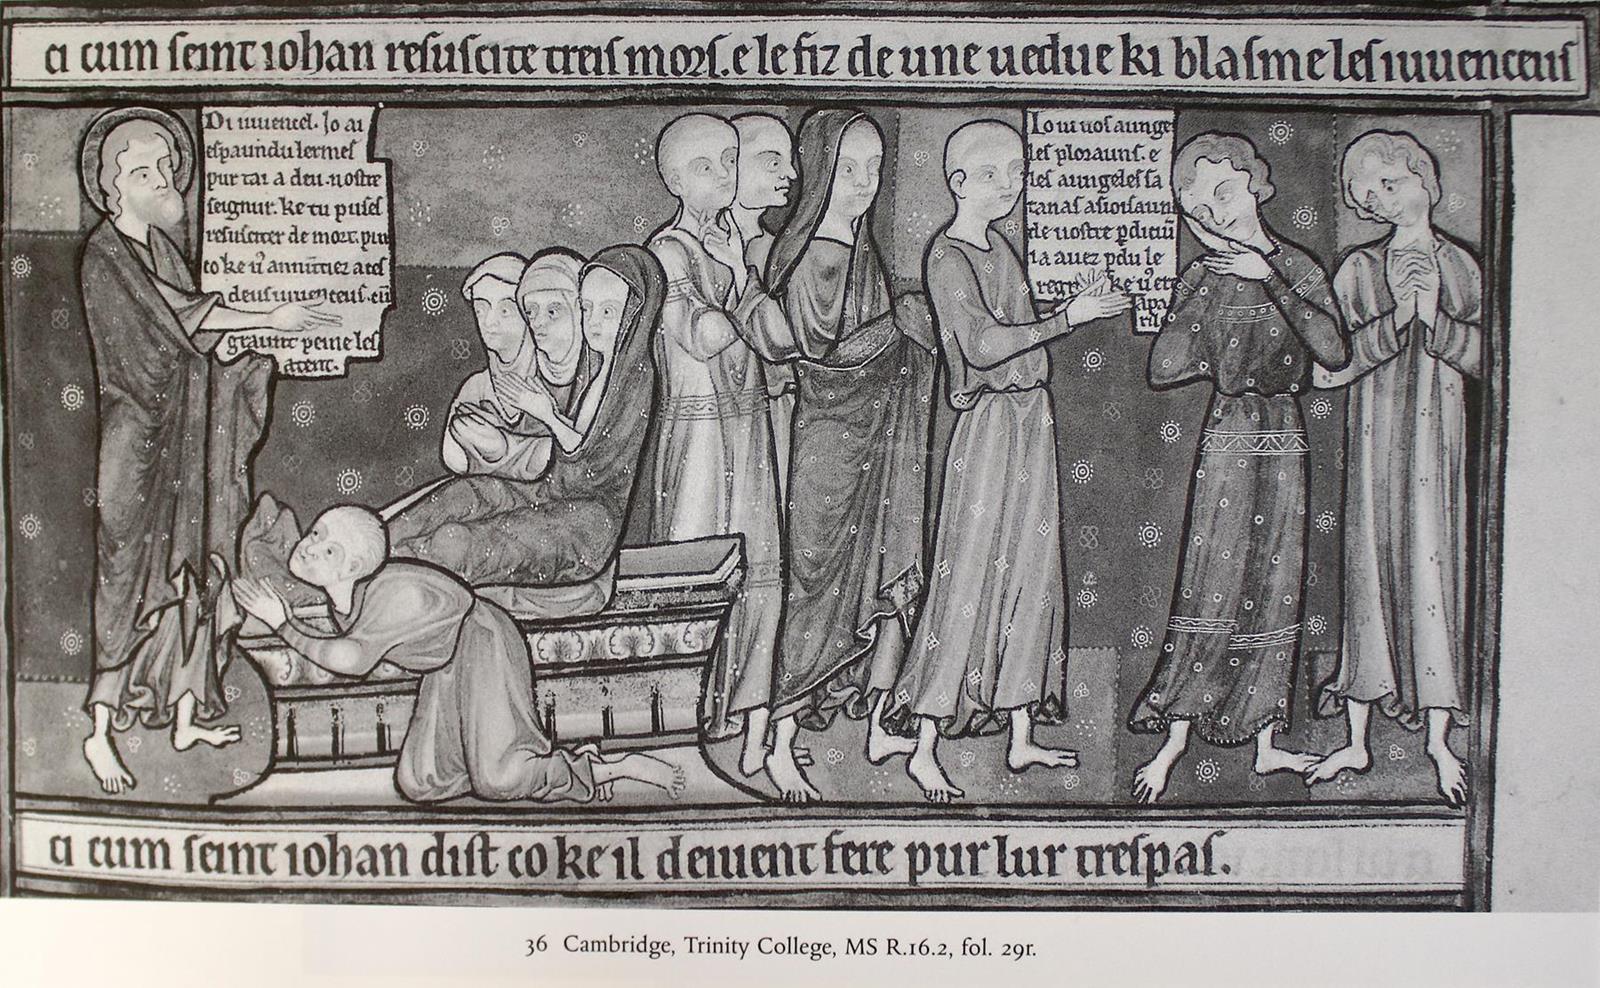 ci cum seint iohan resuscite treis mors. e le fiz de une uedue ki blasme les iuuenceus
Di iuuencel. Jo ai
espaundu lermes
pur tai a deu nostre
seignur. ke tu pusses
resusciter de mort. pur
co ke annuntiez a ces
deus iuuenceus. cum
graunt peine les
atent.
Jo ui uos aunge
les plorauns. e
les aungeles sa
tanas
de uostre
ia auez pdu le
ke
ci cum seint iohan dist co ke il deiuent fere pur lur trespas.
36 Cambridge, Trinity College, MS R.16.2, fol. 29r.